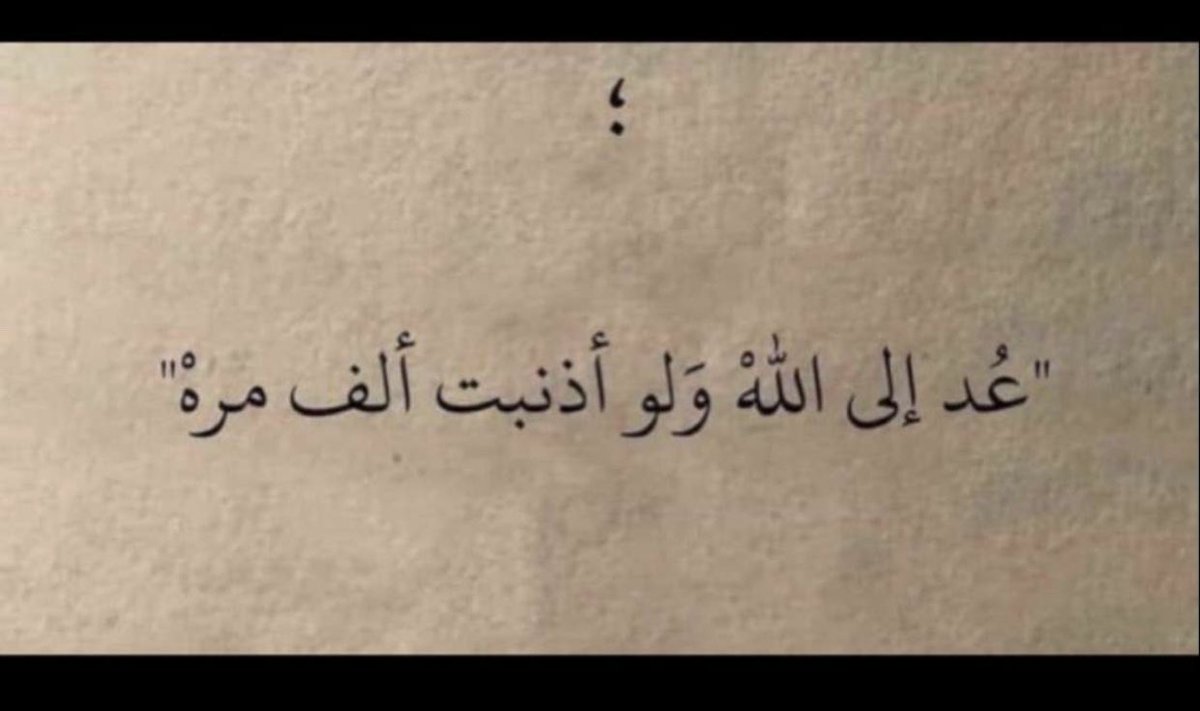 ؛
"عُد إلى اللّٰهْ وَلو أذنبت ألف مرهْ"